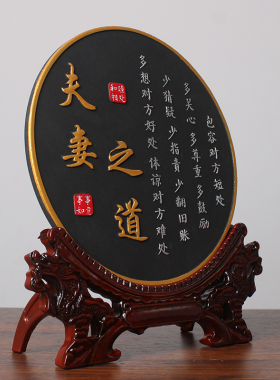 夫妻之道
包容对方短处
多关心 多尊重 多鼓励
少猜疑 少指責 少翻旧账
多想对方好处 体谅对方难处